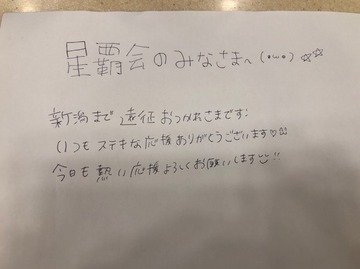 星覇会のみなさまへ(•ω•)☆☆
新潟まで遠征おつかれさまです!
いつもステキな応援ありがとうございます♡♡
今日も熱い応援よろしくお願いします!!